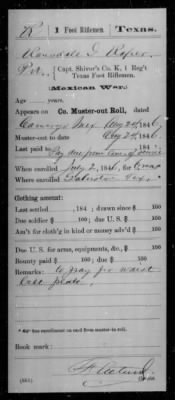 R | 1 Foot Riflemen. | Texas.
Pvt., Capt. Shivor's Co. K, 1 Reg't
Texas Foot Riflemen.
(Mexican War.)
Age years.
Appears on Co. Muster-out Roll, dated
Camargo Mex Aug 24, 1846.
Muster-out to date Aug 24, 1846.
Last paid to , 184 .
Pay due from time of
When enrolled July 2, 1846, 6 mos
Where enrolled Galveston Tex
Clothing account:
Last settled , 184 ; drawn since $ 100
Due soldier $ 100; due U. S. $ 100
Am't for cloth'g in kind or money adv'd $ 100
Due U. S. for arms, equipments, &c., $ 100
Bounty paid $ 100; due $ 100
Remarks: to pay for waist
belt plate.
Book mark:
(861) Copyist.